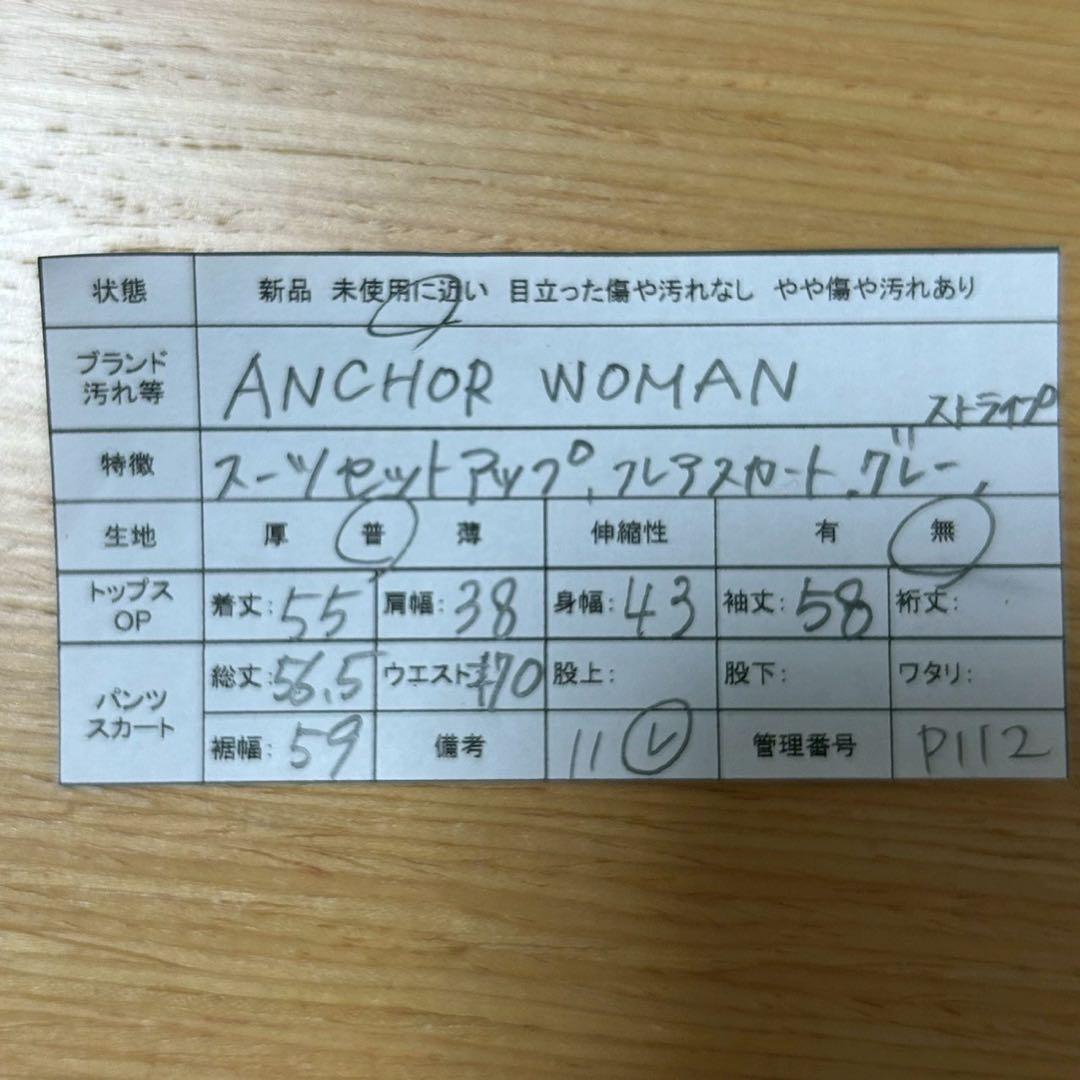 状態 新品 未使用に近い 目立った傷や汚れなし やや傷や汚れあり
ブランド
汚れ等 ANCHOR WOMAN
ストライプ
特徴 スーツセットアップ、フレアスカート、グレー、
生地 厚 普 薄 伸縮性 有 無
トップス
OP 着丈:55 肩幅:38 身幅:43 袖丈:58 裄丈:
パンツ
スカート 総丈:56.5 ウエスト:70 股上: 股下: ワタリ:
裾幅:59 備考 11 レ 管理番号 P112